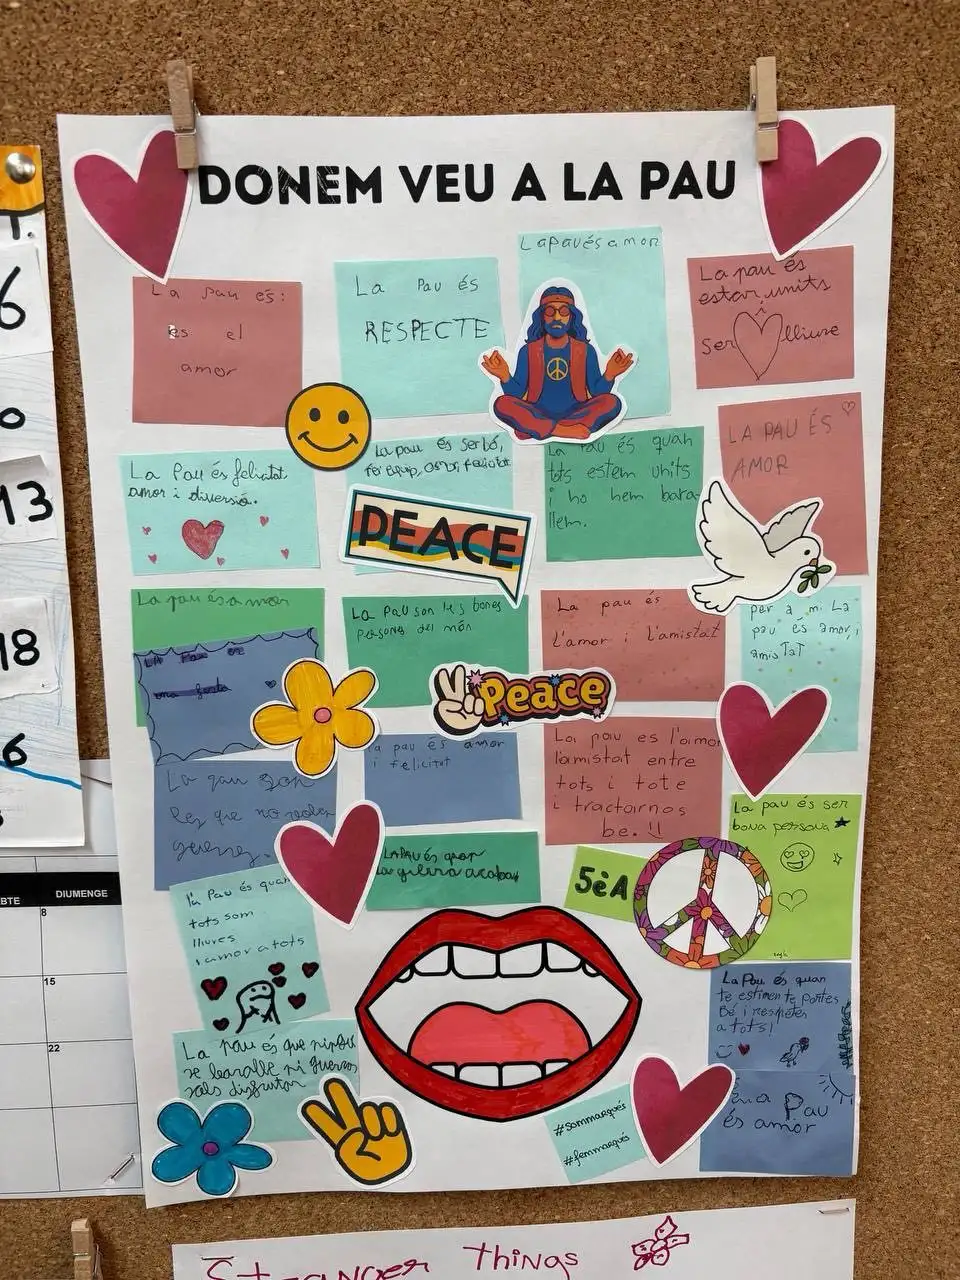 DONEM VEU A LA PAU
La pau és:
és el
amor
La Pau és
RESPECTE
La pau és amor
La pau és
estar units
i
ser lliure
La Pau és felicitat,
amor i diversió.
La pau és ser bó,
fer equip, amor, felicitat.
PEACE
La Pau és quan
tots estem units
i no hem bara-
llem.
LA PAU ÉS
AMOR
La pau és amor
LA Pau és
una festa
La Pau son les bones
persones del món
Peace
La pau és
l'amor i l'amistat
per a mi La
pau és amor,i
amisTaT
La pau son
les que no volen
guerres.
la pau és amor
i felicitat
La pau es l'amor
l'amistat entre
tots i tote
i tractarnos
be.
La pau és ser
bona persona
LA PAU és quan
la guerra acaba
5èA
la Pau és quan
tots som
lliures
i amor a tots
La Pau és quan
te estimen te portes
Bé i respetes
a tots!
La pau és que ningú
se baralle ni guerres
sols disfrutar
#sommarqués
#femmarqués
La Pau
és amor
T.
6
0
13
18
6
BTE DIUMENGE
8
15
22
Stranger Things